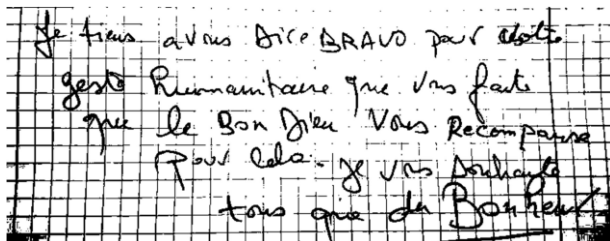 Je tiens a vous Dire BRAVO pour votre
geste humanitaire que vous faite
que le Bon Dieu Vous Recompause
Pour cela. je vous souhaite
tous que du Bonheur